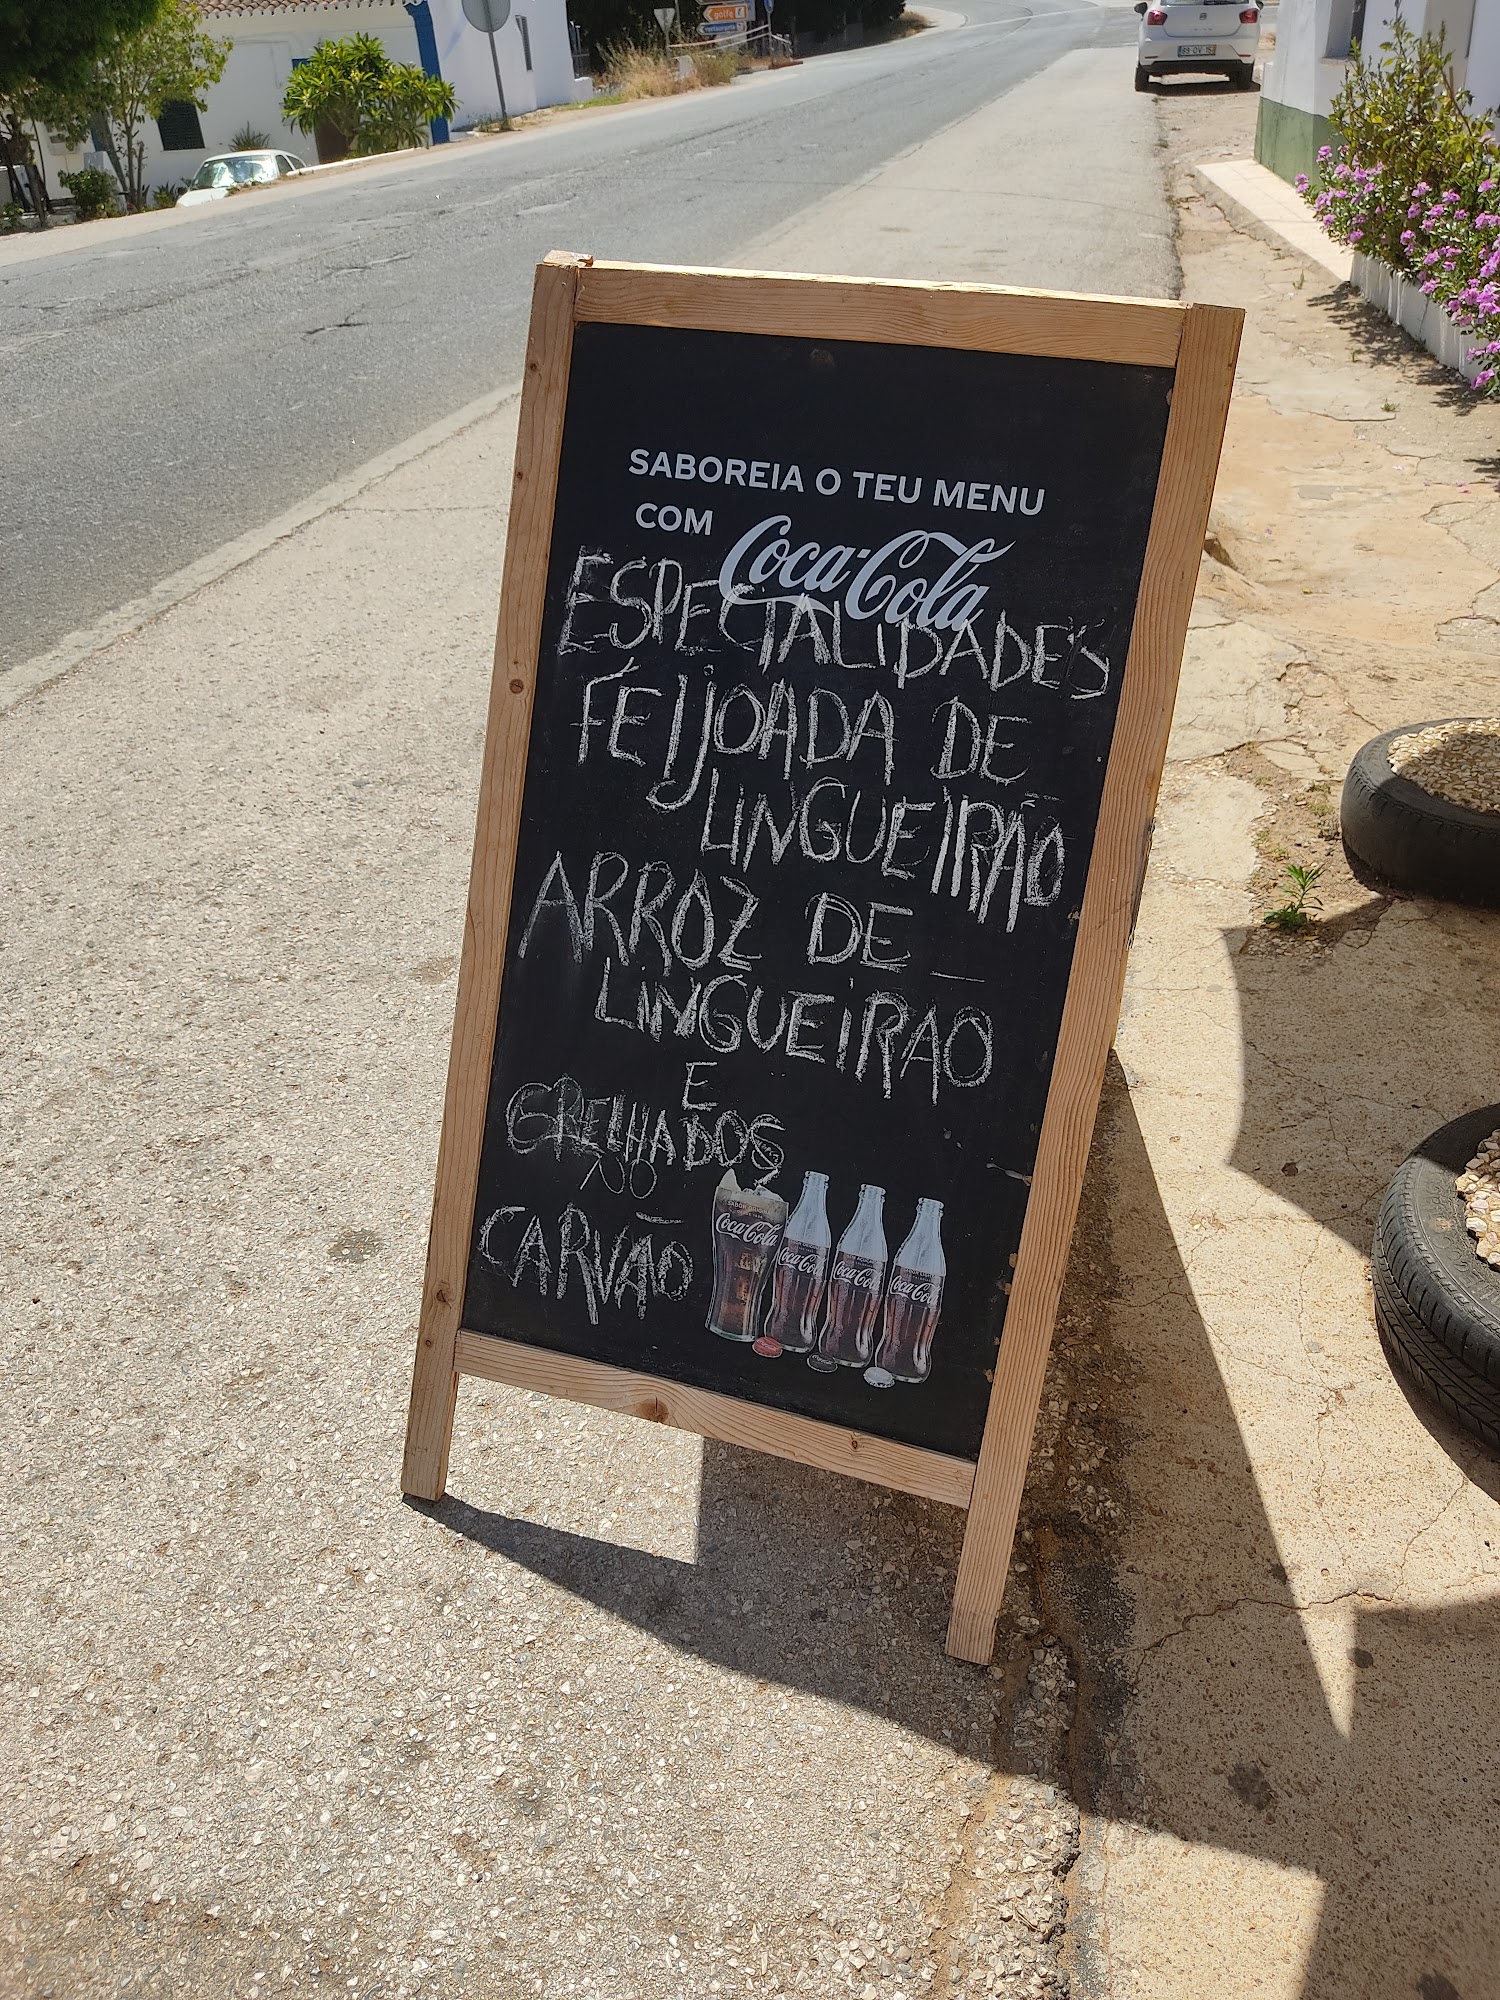 golfe
89 OV 15
SABOREIA O TEU MENU
COM Coca-Cola
ESPECIALIDADES
FEIJOADA DE
LINGUEIRÃO
ARROZ DE
LINGUEIRÃO
E
GRELHADOS
NO
CARVÃO
Coca-Cola Coca-Cola Coca-Cola Coca-Cola